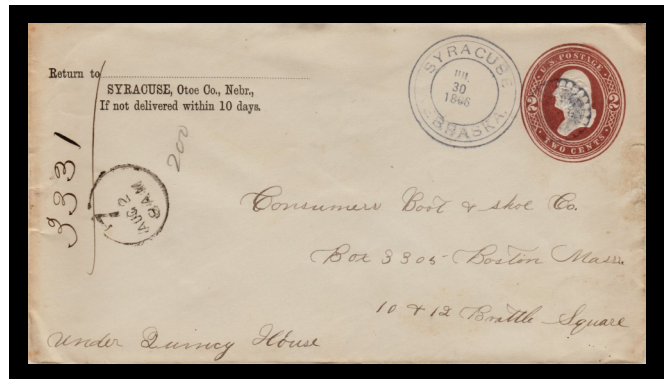 Return to
SYRACUSE, Otoe Co., Nebr.,
If not delivered within 10 days.
SYRACUSE
JUL
30
NEBRASKA.
U.S. POSTAGE
2 2
TWO CENTS
200
3331
AUG 2
8 AM
Consumers Boot & shoe Co.
Box 3305 Boston Mass.
10 & 12 Brattle Square
Under Quincy House